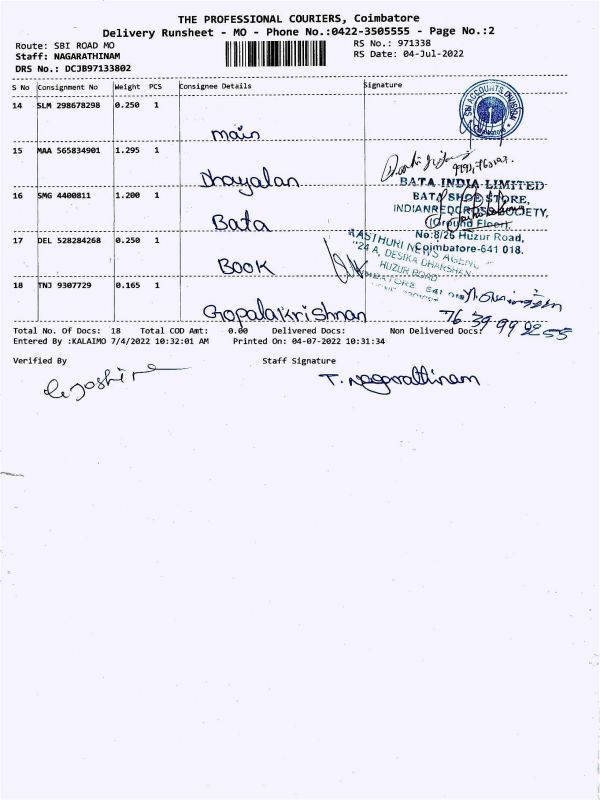 THE PROFESSIONAL COURIERS, Coimbatore
Delivery Runsheet - MO - Phone No.:0422-3505555 - Page No.:2
Route: SBI ROAD MO RS No.: 971338
Staff: NAGARATHINAM RS Date: 04-Jul-2022
DRS No.: DCJB97133802
S No Consignment No Weight PCS Consignee Details Signature
14 SLM 298678298 0.250 1
main
SBI ACCOUNTS DIVISION
15 MAA 565834901 1.295 1
Dhayalan
16 SMG 4400811 1.200 1
Bata
BATA INDIA LIMITED
BATA SHOE STORE,
INDIANREDCROSS SOCIETY,
(Ground Floor),
No:8/26 Huzur Road,
Coimbatore-641 018.
17 DEL 528284268 0.250 1
BOOK
KASTHURI NEWS AGENC
"24 A, DESIKA DHARSHAN"
HUZUR ROAD
18 TNJ 9307729 0.165 1
Gopalakrishnan
76 39 99 92 55
Total No. Of Docs: 18 Total COD Amt: 0.00 Delivered Docs: Non Delivered Docs:
Entered By :KALAIMO 7/4/2022 10:32:01 AM Printed On: 04-07-2022 10:31:34
Verified By Staff Signature
T. Nagarathinam